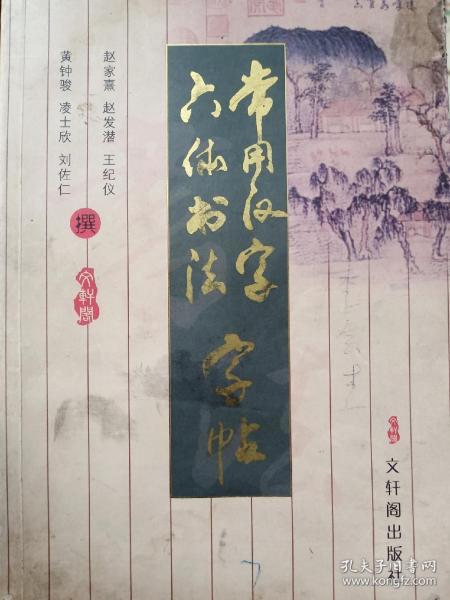 常用汉字
六体书法
字帖
赵家熹 赵发潜 王纪仪
黄钟骏 凌士欣 刘佐仁
撰
文軒閣
文轩阁出版社
孔夫子旧书网
www.kongfz.com